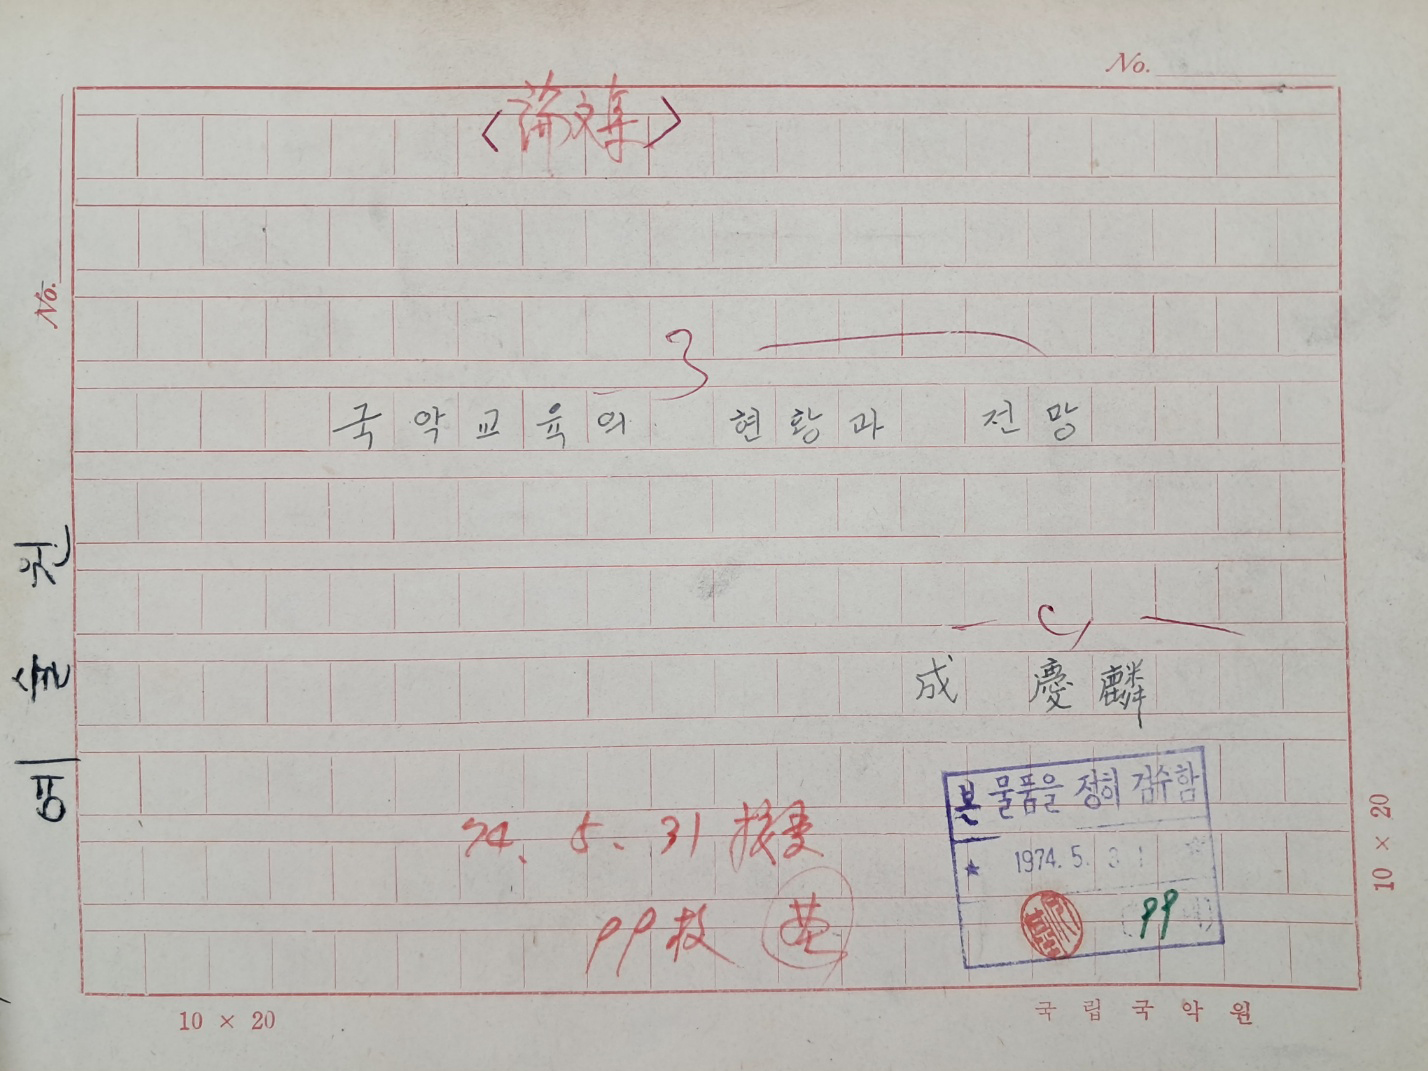 No.
〈論文集〉
No.
국악교육의 현황과 전망
成 慶麟
본 물품을 정히 검수함
74. 5. 31 接受
★ 1974. 5. 31
99枚
99
10 × 20
10 × 20
국립국악원